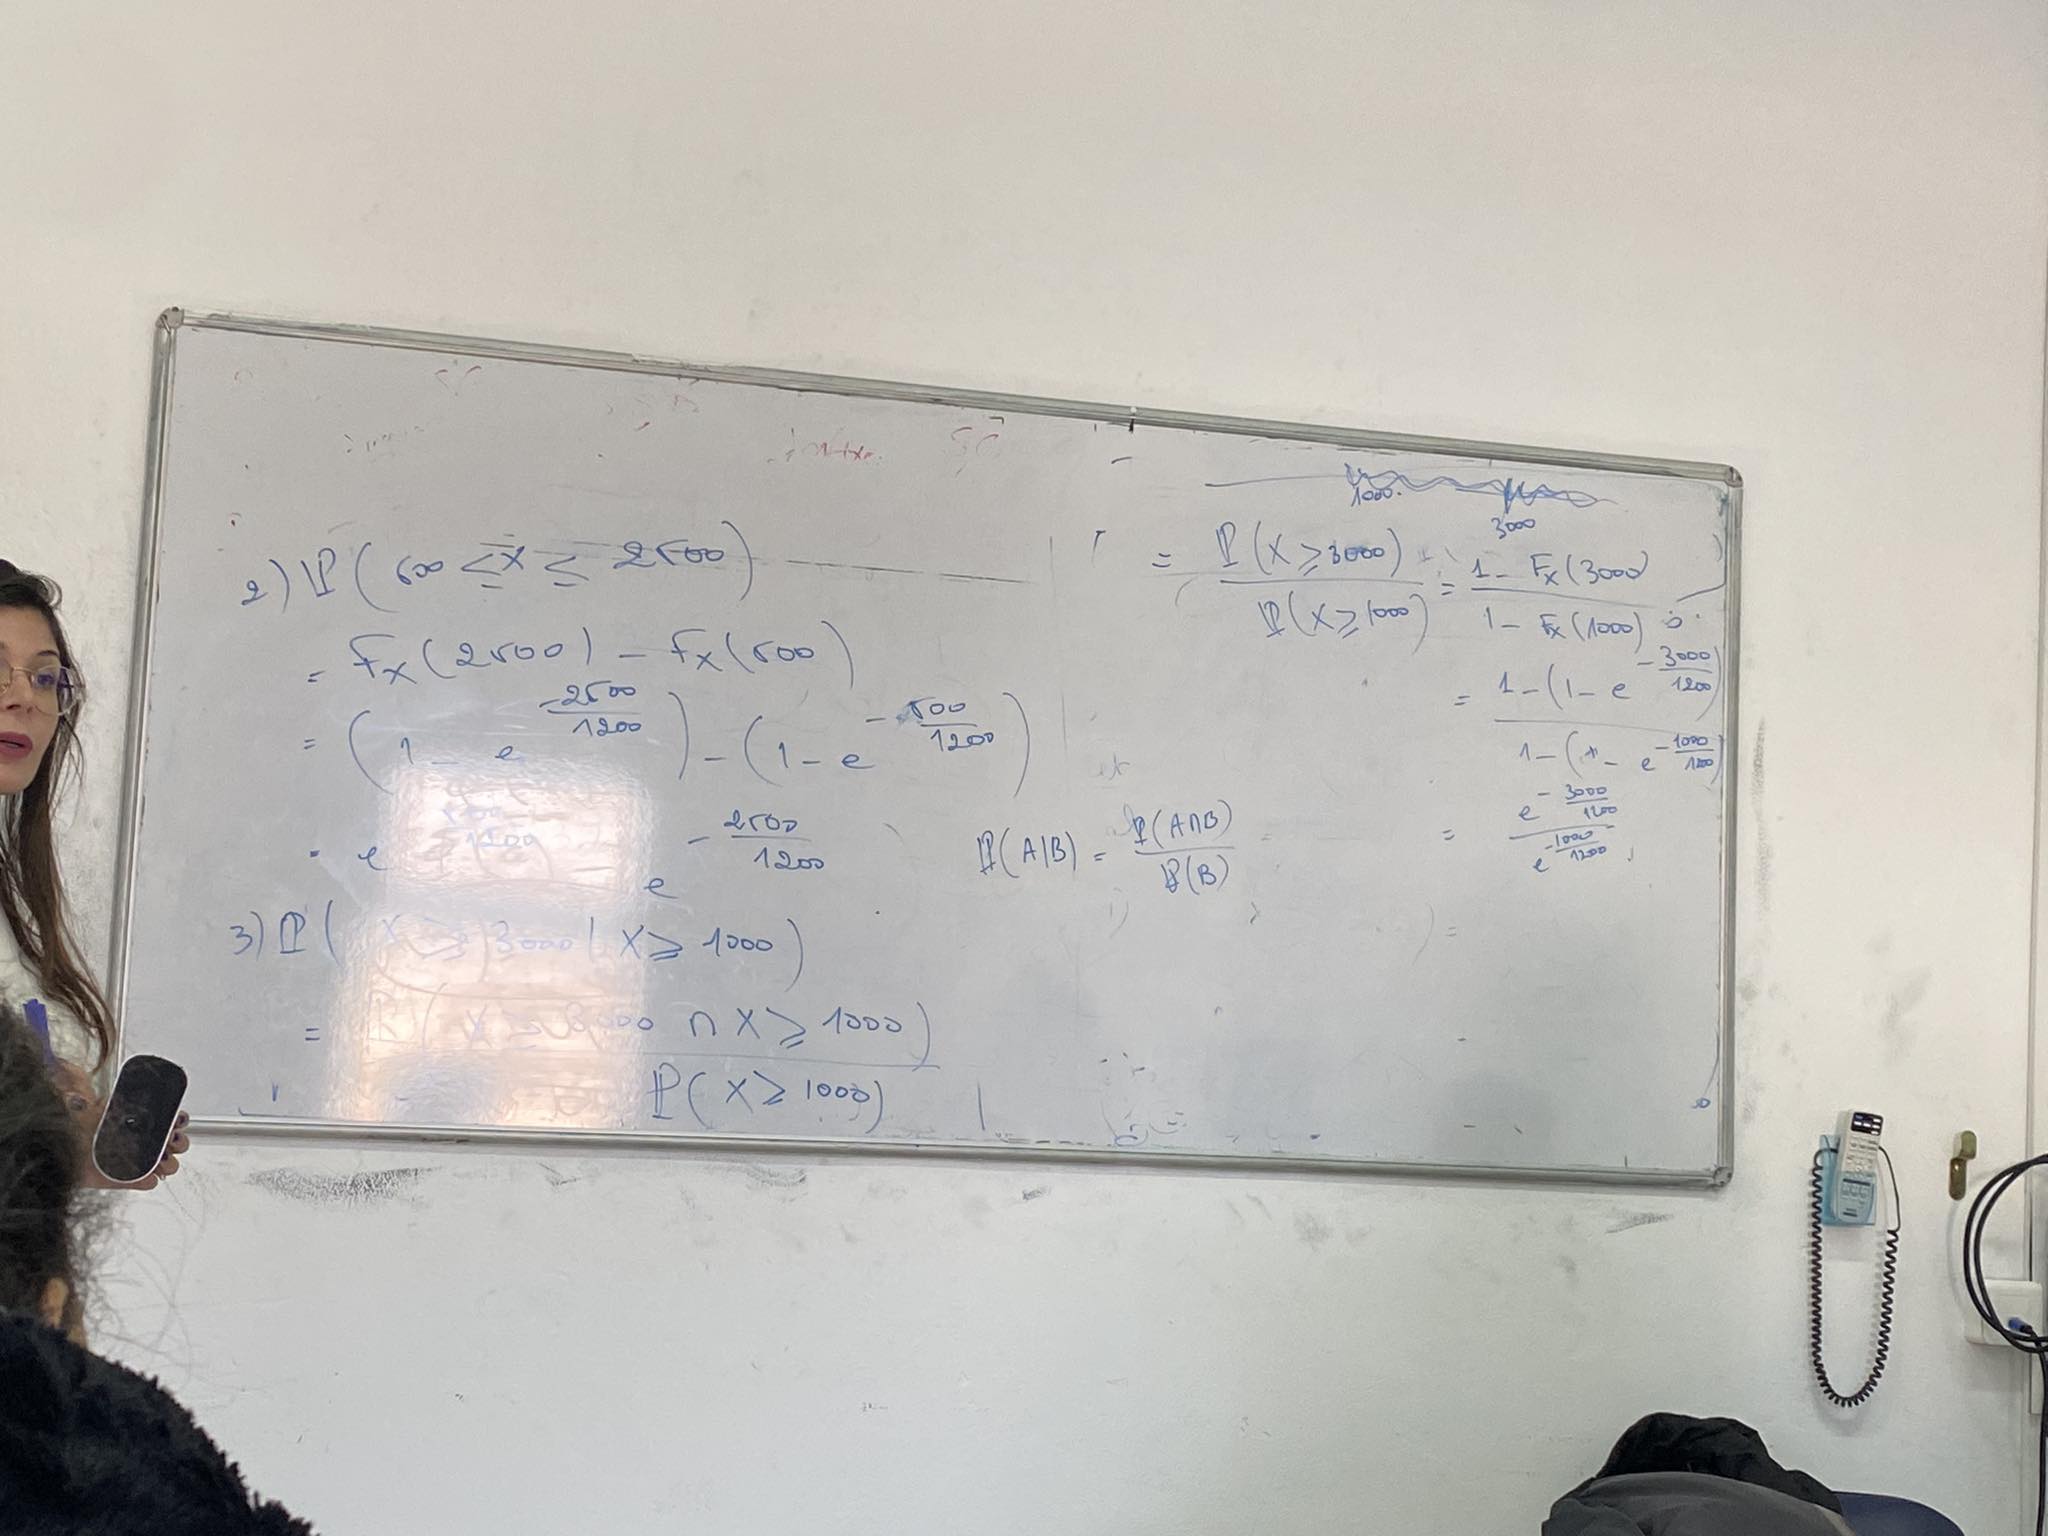 2) ℙ(500 ≤ X ≤ 2500)
= F_X(2500) - F_X(500)
= (1 - e^{-2500/1200}) - (1 - e^{-500/1200})
= e^{-500/1200} - e^{-2500/1200}
3) ℙ(X ≥ 3000 | X ≥ 1000)
= ℙ(X ≥ 3000 ∩ X ≥ 1000) / ℙ(X ≥ 1000)
ℙ(A|B) = ℙ(A∩B) / ℙ(B)
1000
3000
= ℙ(X ≥ 3000) / ℙ(X ≥ 1000) = (1 - F_X(3000)) / (1 - F_X(1000))
= (1 - (1 - e^{-3000/1200})) / (1 - (1 - e^{-1000/1200}))
= e^{-3000/1200} / e^{-1000/1200}